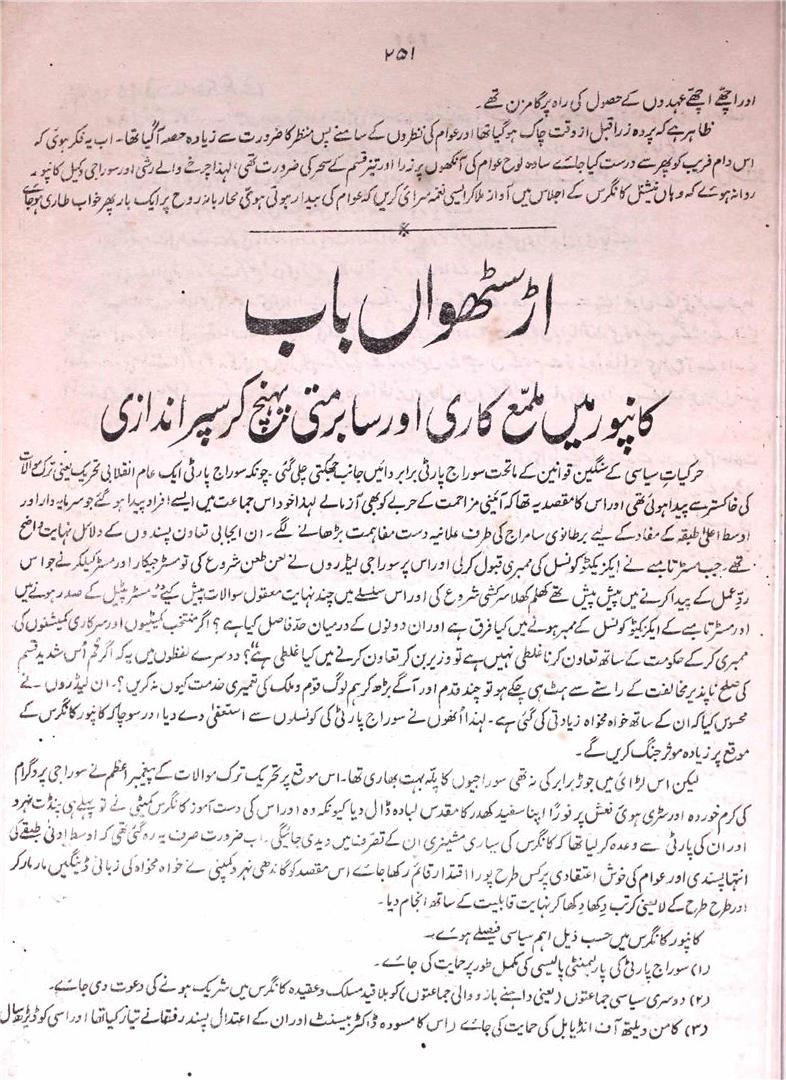 ۲۵۱
اور اچھے اچھے عہدوں کے حصول کی راہ پر گامزن تھے۔
ظاہر ہے کہ پردہ ذرا قبل از وقت چاک ہوگیا تھا اور عوام کی نظروں کے سامنے پس منظر کا ضرورت سے زیادہ حصہ آگیا تھا۔ اب یہ فکر ہوئی کہ
اس دام فریب کو پھر سے درست کیا جائے سادہ لوح عوام کی آنکھوں پر ذرا اور تیز قسم کے سحر کی ضرورت تھی، لہذا چرخے والے رشی اور سوراجی وکیل کانپور
روانہ ہوئے کہ وہاں نیشنل کانگرس کے اجلاس میں آواز ملا کر ایسی نغمہ سرائی کریں کہ عوام کی بیدار ہوتی ہوئی محاربانہ روح پر ایک بار پھر خواب طاری ہوجائے
اڑسٹھواں باب
کانپور میں ملمّع کاری اور سابرمتی پہنچ کر سپر اندازی
حرکیات سیاسی کے سنگین قوانین کے ماتحت سوراج پارٹی برابر دائیں جانب جھکتی چلی گئی۔ چونکہ سوراج پارٹی ایک عام انقلابی تحریک یعنی ترک موالات
کی خاکستر سے پیدا ہوئی تھی اور اس کا مقصد یہ تھا کہ آئینی مزاحمت کے حربے کو بھی آزمالے لہذا خود اس جماعت میں ایسے افراد پیدا ہوگئے جو سرمایہ دار اور
اوسط اعلیٰ طبقہ کے مفاد کے لیے برطانوی سامراج کی طرف علانیہ دست مفاہمت بڑھانے لگے۔ ان ایجابی تعاون پسندوں کے دلائل نہایت واضح
تھے۔ جب مسٹر تامبے نے ایگزیکٹو کونسل کی ممبری قبول کرلی اور اس پر سوراجی لیڈروں نے لعن طعن شروع کی تو مسٹر جیکار اور مسٹر کیلکر نے جو اس
ردِّ عمل کے پیدا کرنے میں پیش پیش تھے کھلم کھلا سرکشی شروع کی اور اس سلسلے میں چند نہایت معقول سوالات پیش کیے "مسٹر پٹیل کے صدر ہونے میں
اور مسٹر تامبے کے ایگزیکٹو کونسل کے ممبر ہونے میں کیا فرق ہے اور ان دونوں کے درمیان حدّ فاصل کیا ہے؟ اگر منتخب کمیٹیوں اور سرکاری کمیشنوں کی
ممبری کرکے حکومت کے ساتھ تعاون کرنا غلطی نہیں ہے تو وزیر بن کر تعاون کرنے میں کیا غلطی ہے"؟ دوسرے لفظوں میں یہ کہ اگر تم اُس شدید قسم
کی صلح ناپذیر مخالفت کے راستے سے ہٹ ہی چکے ہو تو چند قدم اور آگے بڑھ کر ہم لوگ قوم و ملک کی تعمیری خدمت کیوں نہ کریں؟۔ ان لیڈروں نے
محسوس کیا کہ ان کے ساتھ خواہ مخواہ زیادتی کی گئی ہے۔ لہذا اُنھوں نے سوراج پارٹی کی کونسلوں سے استعفیٰ دے دیا اور سوچا کہ کانپور کانگرس کے
موقع پر زیادہ موثر جنگ کریں گے۔
لیکن اس لڑائی میں جوڑ برابر کی نہ تھی سوراجیوں کا پلّہ بہت بھاری تھا۔ اس موقع پر تحریک ترک موالات کے پیغمبر اعظم نے سوراجی پروگرام
کی کرم خوردہ اور سڑی ہوئی نعش پر فوراً اپنا سفید کھدر کا مقدس لبادہ ڈال دیا کیونکہ وہ اور اس کی دست آموز کانگرس کمیٹی نے تو پہلے ہی پنڈت نہرو
اور ان کی پارٹی سے وعدہ کرلیا تھا کہ کانگرس کی ساری مشینری ان کے تصرف میں دیدی جائیگی۔ اب ضرورت صرف یہ رہ گئی تھی کہ اوسط ادنیٰ طبقے کی
انتہا پسندی اور عوام کی خوش اعتقادی پر کس طرح پورا اقتدار قائم رکھا جائے اس مقصد کو گاندھی نہرو کمپنی نے خواہ مخواہ کی زبانی ڈینگیں مار مار کر
اور طرح طرح کے لایعنی کرتب دکھا دکھا کر نہایت قابلیت کے ساتھ انجام دیا۔
کانپور کانگرس میں حسب ذیل اہم سیاسی فیصلے ہوئے۔
(۱) سوراج پارٹی کی پارلیمنٹی پالیسی کی مکمل طور پر حمایت کی جائے۔
(۲) دوسری سیاسی جماعتوں (یعنی داہنے بازو والی جماعتوں) کو بلاقید مسلک و عقیدہ کانگرس میں شریک ہونے کی دعوت دی جائے۔
(۳) کامن ویلتھ آف انڈیا بل کی حمایت کی جائے (اس کا مسودہ ڈاکٹر بیسنٹ اور ان کے اعتدال پسند رفقا نے تیار کیا تھا اور اسی کو ڈیڑھ سال